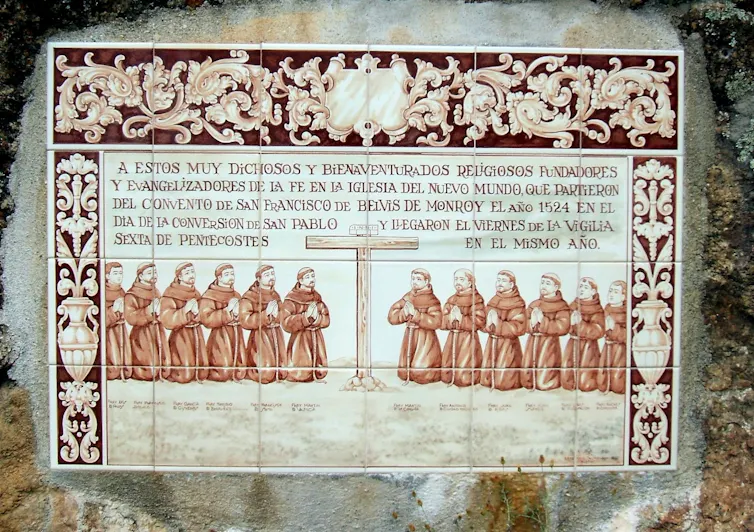 A ESTOS MUY DICHOSOS Y BIENAVENTURADOS RELIGIOSOS FUNDADORES
Y EVANGELIZADORES DE LA FE EN LA IGLESIA DEL NUEVO MUNDO, QUE PARTIERON
DEL CONVENTO DE SAN FRANCISCO DE BELVIS DE MONROY EL AÑO 1524 EN EL
DIA DE LA CONVERSION DE SAN PABLO Y LLEGARON EL VIERNES DE LA VIGILIA
SEXTA DE PENTECOSTES EN EL MISMO AÑO.